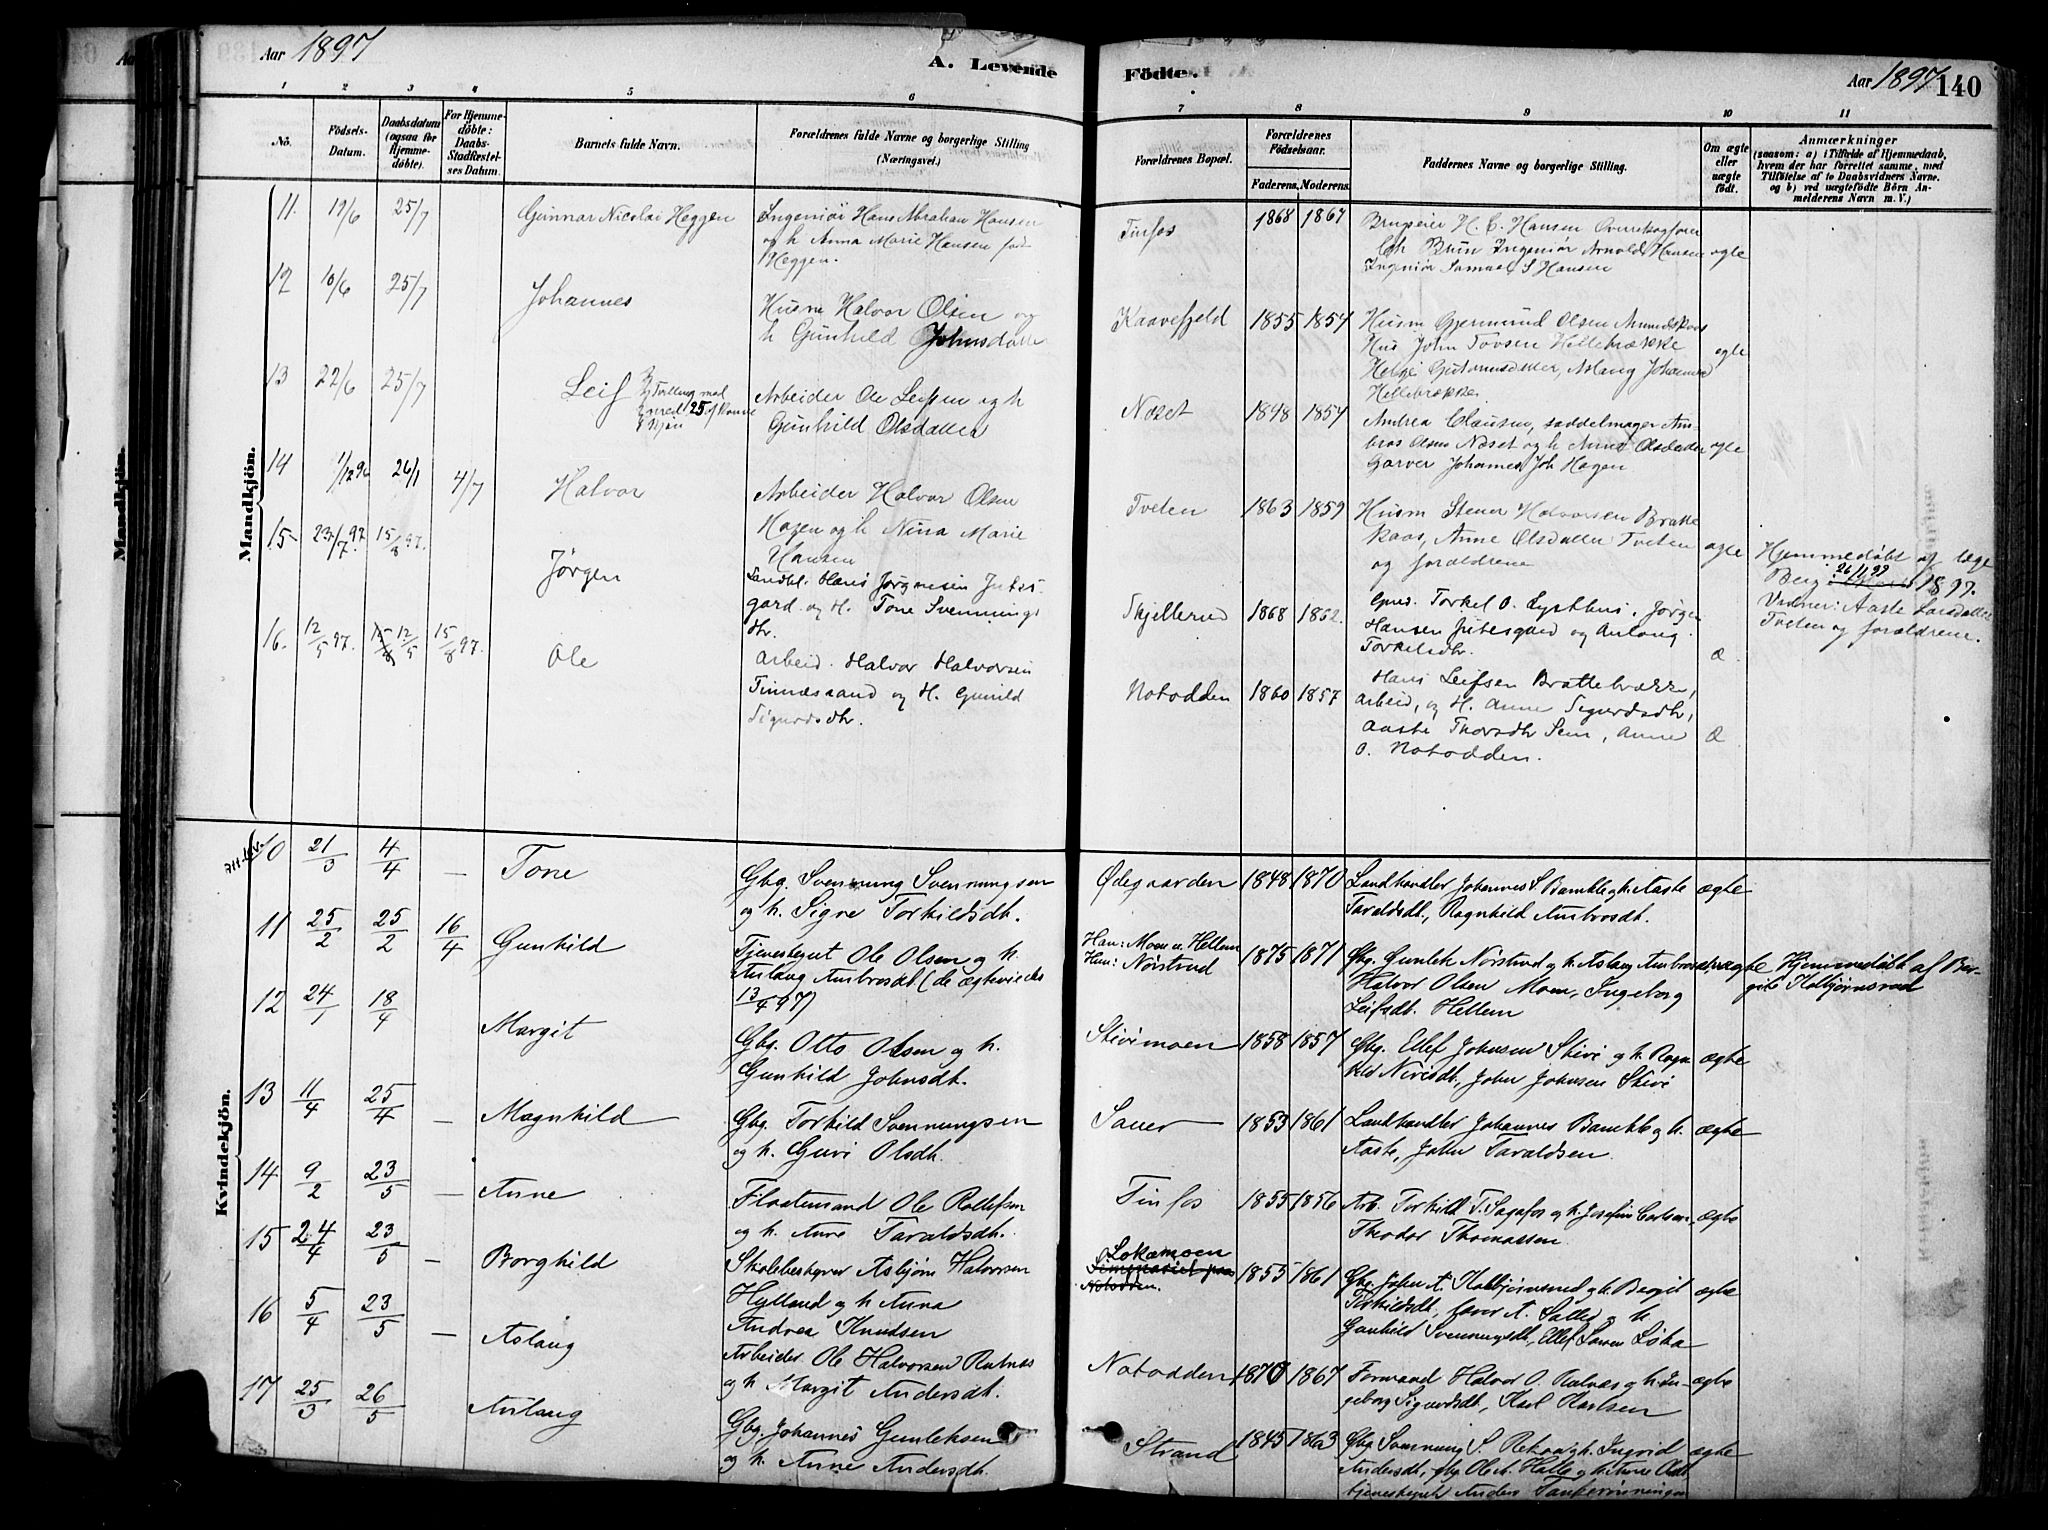 Aar 1897
A. Levende
Födte.
Aar 1897 140
1 2 3 4 5 6 7 8 9 10 11
No.
Födsels-Datum.
Daabsdatum (ogsaa for Hjemmedöbte).
For Hjemmedöbte: Daabs-Stadfæstelses Datum.
Barnets fulde Navn.
Forældrenes fulde Navne og borgerlige Stilling (Næringsvei.)
Forældrenes Bopæl.
Forældrenes Födselsaar.
Faderens. Moderens.
Faddernes Navne og borgerlige Stilling.
Om ægte eller uægte födt.
Anmærkninger
(saasom: a) i Tilfælde af Hjemmedaab, hvem der har forrettet samme, med Tilföielse af to Daabsvidners Navne. og b) ved uægtefödte Börn Anmelderens Navn m. V.)
Mandkjön.
11. 19/6 25/7 Gunnar Nicolai Heggen
Ingeniör Hans Abraham Hansen
og h Anna Marie Hansen född
Heggen.
Tinfos 1868 1867
Brugseier H. C. Hansen
Bruun Ingeniør Arnold Hansen
Ingeniør Samuel S Hansen
ægte
12 10/6 25/7 Johannes
Husm Halvor Olsen og
h Gunhild Johnsdatte
Kaavefjeld 1855 1854
Husm Gjermund Olsen
John Tovsen Hellebrække
Aslaug Johannesd
Hellebrække
ægte
13 22/6 25/7 Leif
Arbeider Ole Leifsen og h
Gunhild Olsdatter
Næset 1848 1854
Andrea Clausen, saddelmager Am-
bros Olsen Næset og h Anne Olsdatter
Garver Johannes Joh Hagen
ægte
14 1/12 96 26/1 4/7 Halvor
Arbeider Halvor Olsen
Hagen og h Nina Marie
Hansen
Tveten 1863 1859
Husm Stener Halvorsen Bratte
kaas, Anne Olsdatter Tveten
og forældrene
ægte
Hjemmedøbt af læge
Berg 26/1 97 1897.
Vidner: Aaste Larsdatter
Tveten og forældrene.
15 23/7 97. 15/8 97. Jørgen
Landbr. Hans Jørgensen Jutes-
gard. og H. Tone Svennings
dtr.
Skjellerud 1868 1862.
Torkel O. Lysthus, Jørgen
Hansen Jutesgard og Anlaug
Torkelsdtr.
Æ.
16. 12/5 97. 12/5 15/8 97. Ole
Arbeid. Halvor Halvorsen
Tinnæssand og H. Gunild
Sigurdsdtr.
Notodden 1860 1857
Hans Leifsen Brattebrække,
arbeid, og H. Anne Sigurdsdtr,
Aaste Thorsdtr Sem, Anne
O. Notodden.
Æ
Kvindekjön.
10 21/3 4/4 — Tone
Gbg. Svennung Svennungsen
og h. Signe Torkildsdtr.
Ødegaarden 1848 1870
Landhandler Johannes S. Bamble og h. Aaste
Taraldsdtr, Ragnhild Ambrosdtr.
ægte
11 25/2 25/2 16/4 Gunhild
Tjenestegut Ole Olsen og h.
Anlaug Ambrosdtr (de ægtevieds
13/4 97)
Han: Moen u. Hellem
Hun: Nørstrud
1875 1871
Gbg. Gunlek Nørstrud og h. Aslaug Ambrosdtr
Halvor Olsen Moen, Ingeborg
Leifsdtr. Hellem
uægte
Hjemmedøbt af Ber-
gite Kolbjørnsrud
12 24/1 18/4 Margit
Gbg. Otto Olsen og h.
Gunhild Johnsdtr.
Stivimoen 1858 1857
Gbg. Ellef Johnsen Stivi og h. Ragn
hild Nirisdtr, John Johnsen Stivi
ægte
13 11/4 25/4 — Magnhild
Gbg. Torkild Svennungsen
og h. Guri Olsdtr.
Sauer 1853 1861
Landhandler Johannes Bamble og h.
Aaste, John Taraldsen
ægte
14 9/2 23/5 — Anne
Flaatemand Ole Rollefsen
og h. Anne Taraldsdtr.
Tinfos 1855 1856
Arb. Torkild T. Sagafos og h. Josefine Carlsen
Theodor Thomassen
ægte
15 24/4 23/5 — Borghild
Skolebestyrer Asbjørn Halvorsen
Hylland og h. Anna
Andrea Knudsen
Lokamoen
Notodden.
1855 1861
Gbg. John A. Kolbjørnsrud og h. Bergit
Torkildsdtr,
Gunhild Svennungsdtr, Ellef Løka
ægte
16 5/4 23/5 — Aslaug
Arbeider Ole Halvorsen Ratnæs
og h. Margit Andersdtr.
Notodden 1870 1867
Formand Halvor O. Ratnæs og h. In-
geborg Sigurdsdtr, Karl Karlsen
ægte
17 25/3 26/5 Anlaug
Gbg. Johannes Gunleksen
og h. Anne Andersdtr.
Strand 1845 1863
Gbg. Svennung S. Rekaa og h. Ingrid
Andersdtr,
tjenestegut Anders
ægte